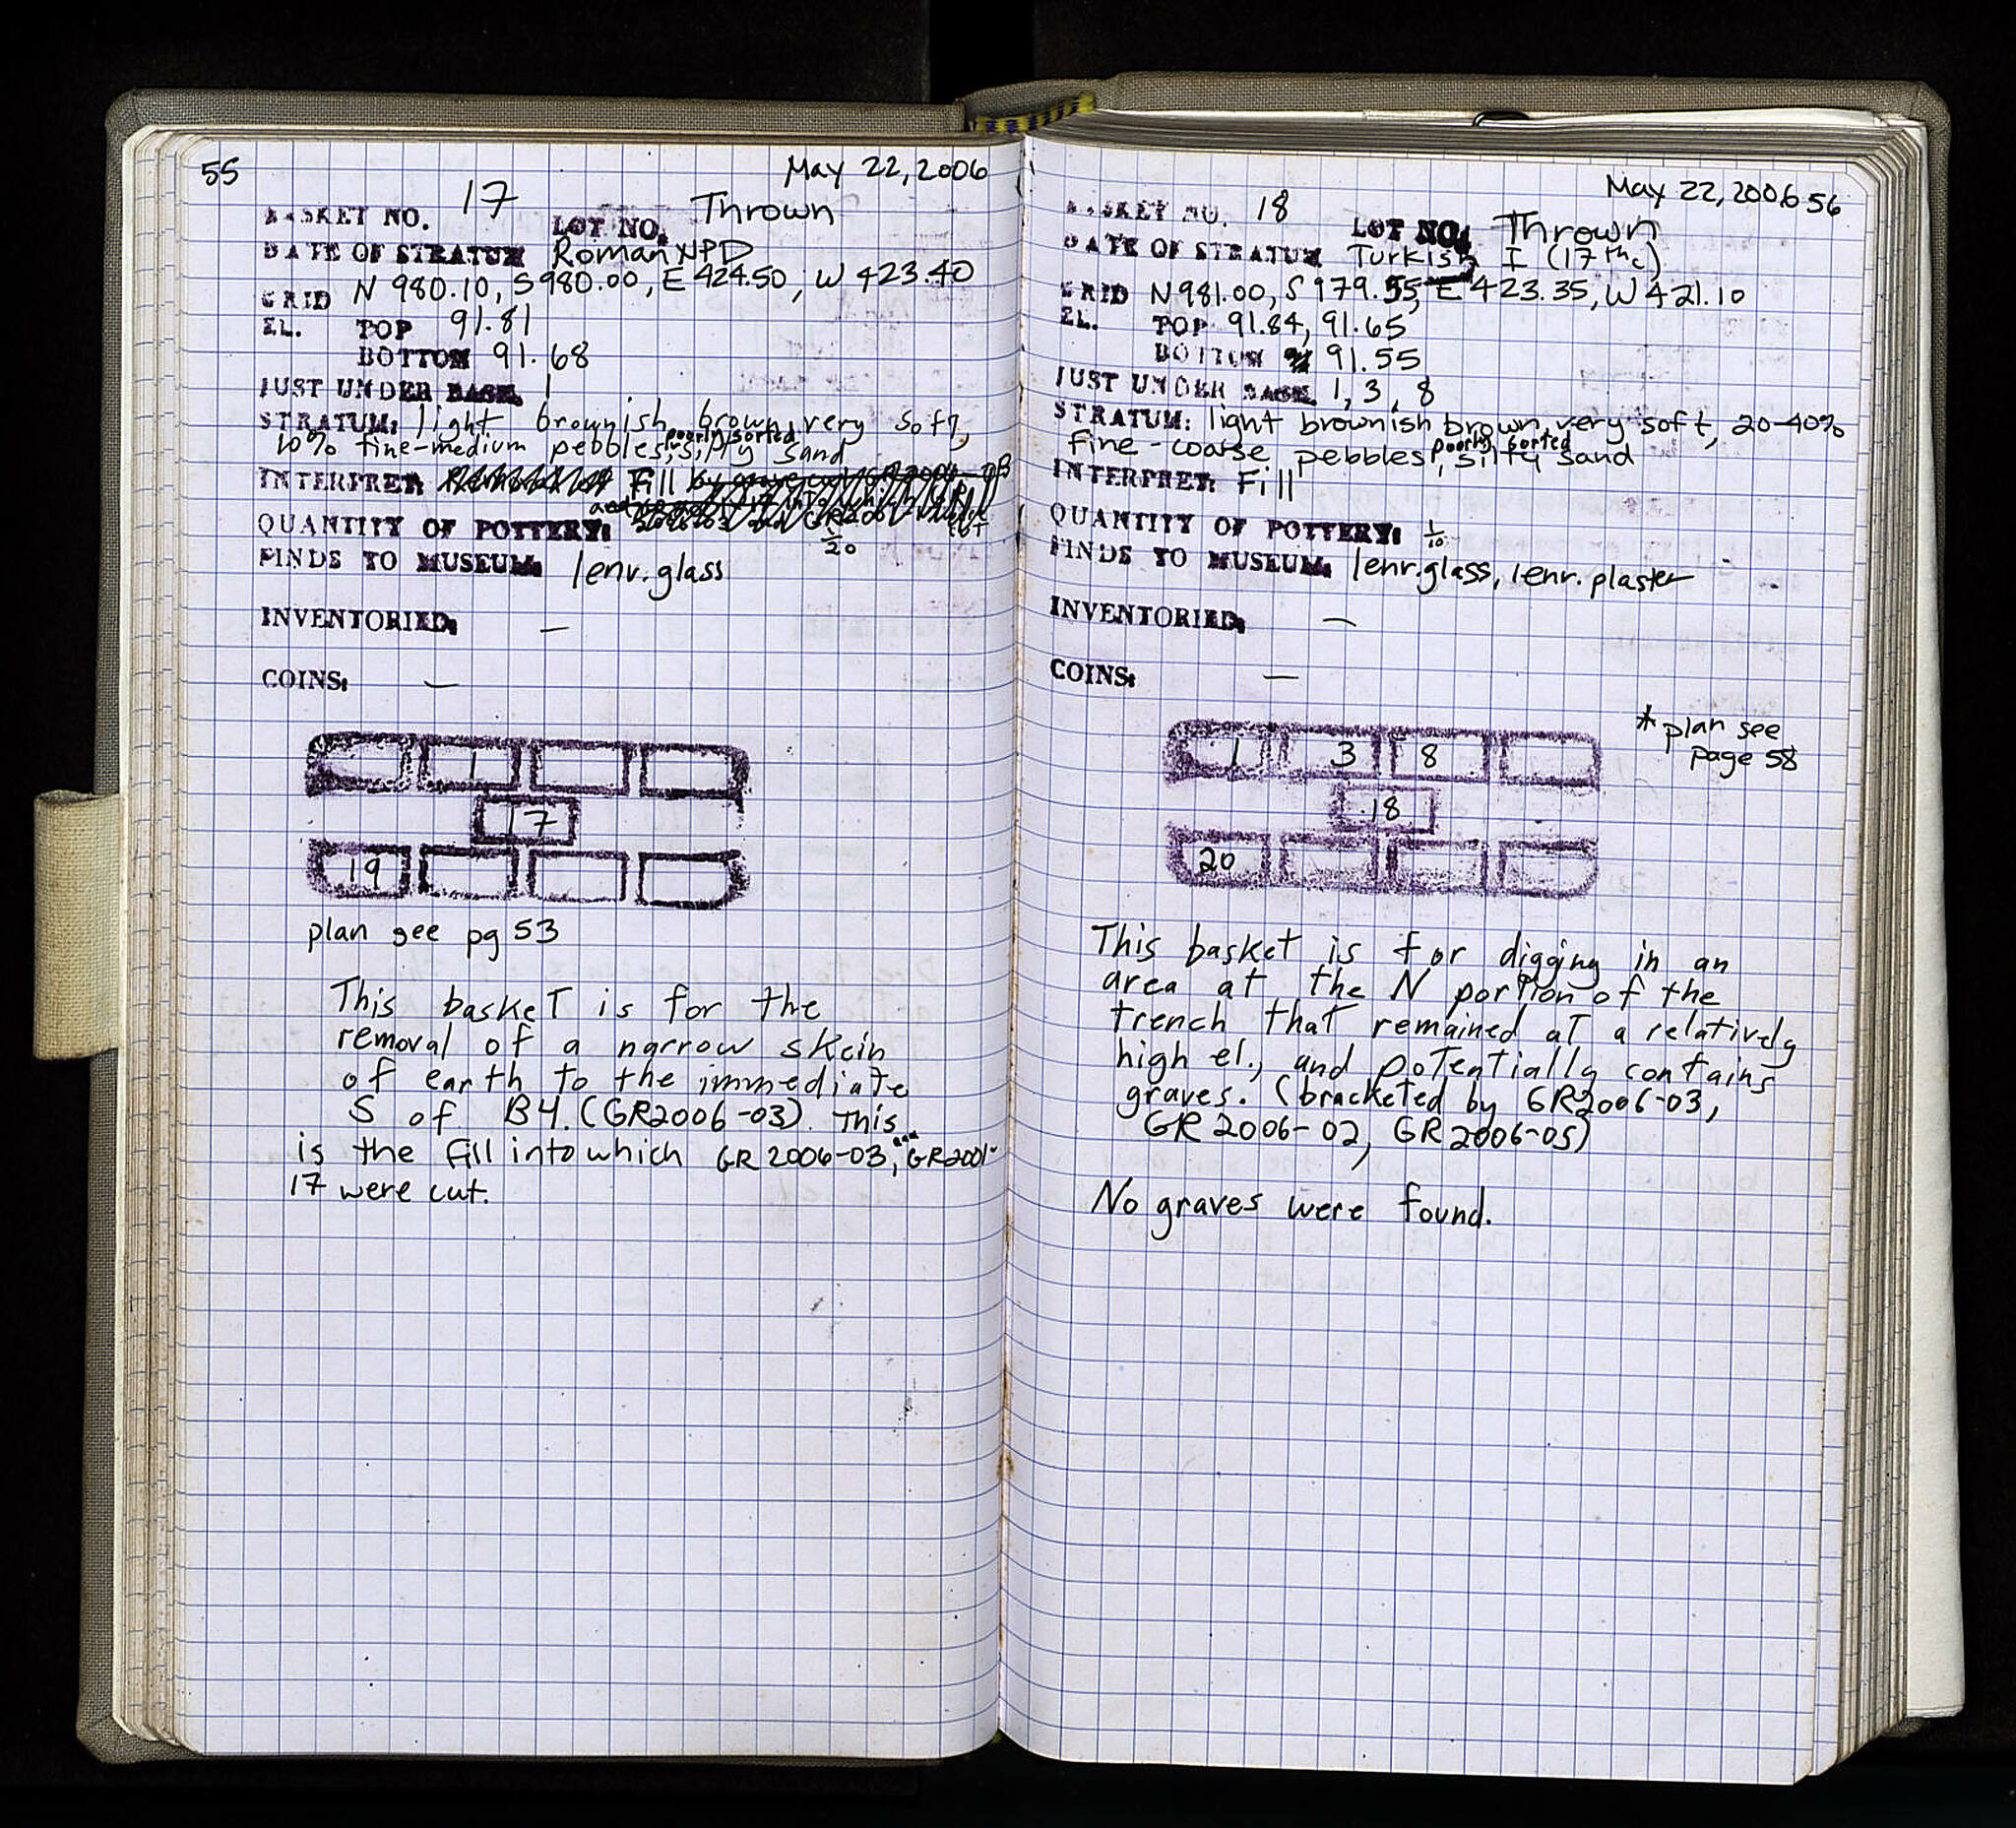 55
May 22, 2006
BASKET NO. 17 LOT NO. Thrown
DATE OF STRATUM Roman NPD
GRID N 980.10, S 980.00, E 424.50, W 423.40
EL. TOP 91.81
BOTTOM 91.68
JUST UNDER BASK. 1
STRATUM: light brownish brown, very soft,
10% fine-medium pebbles, poorly sorted, silty sand
INTERPRET: Fill
QUANTITY OF POTTERY: 1/20
FINDS TO MUSEUM: 1 env. glass
INVENTORIED: —
COINS: —
1
17
19
plan see pg 53
This basket is for the
removal of a narrow skein
of earth to the immediate
S of B4. (GR2006-03). This
is the fill into which GR 2006-03, and GR2001-
17 were cut.
May 22, 2006 56
BASKET NO. 18 LOT NO. Thrown
DATE OF STRATUM Turkish I (17th c)
GRID N 981.00, S 979.55, E 423.35, W 421.10
EL. TOP 91.84, 91.65
BOTTOM 91.55
JUST UNDER BASK. 1, 3, 8
STRATUM: light brownish brown, very soft, 20-40%
fine-coarse pebbles, poorly sorted, silty sand
INTERPRET: Fill
QUANTITY OF POTTERY: 1/10
FINDS TO MUSEUM: 1 env. glass, 1 env. plaster
INVENTORIED: —
COINS: —
* plan see
page 58
1 3 8
18
20
This basket is for digging in an
area at the N portion of the
trench that remained at a relatively
high el., and potentially contains
graves. (bracketed by GR2006-03,
GR 2006-02, GR 2006-05)
No graves were found.